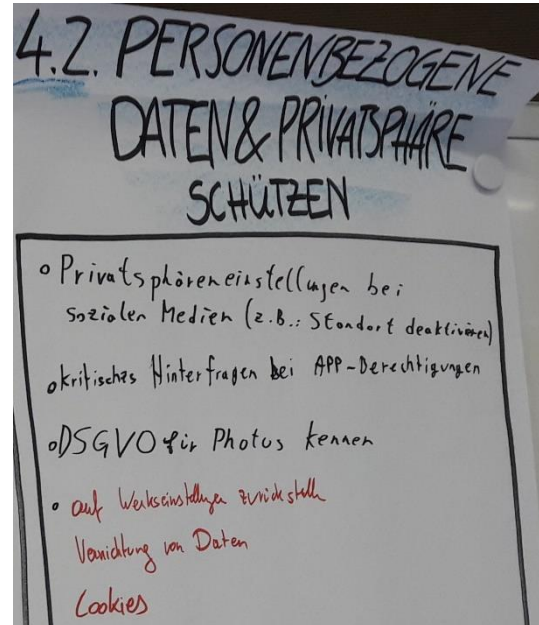 4.2. PERSONENBEZOGENE
DATEN & PRIVATSPHÄRE
SCHÜTZEN
o Privatsphäreneinstellungen bei
sozialen Medien (z.B.: Standort deaktivieren)
o kritisches Hinterfragen bei APP-Berechtigungen
o DSGVO für Photos kennen
• auf Werkseinstellungen zurückstellen
Vernichtung von Daten
Cookies